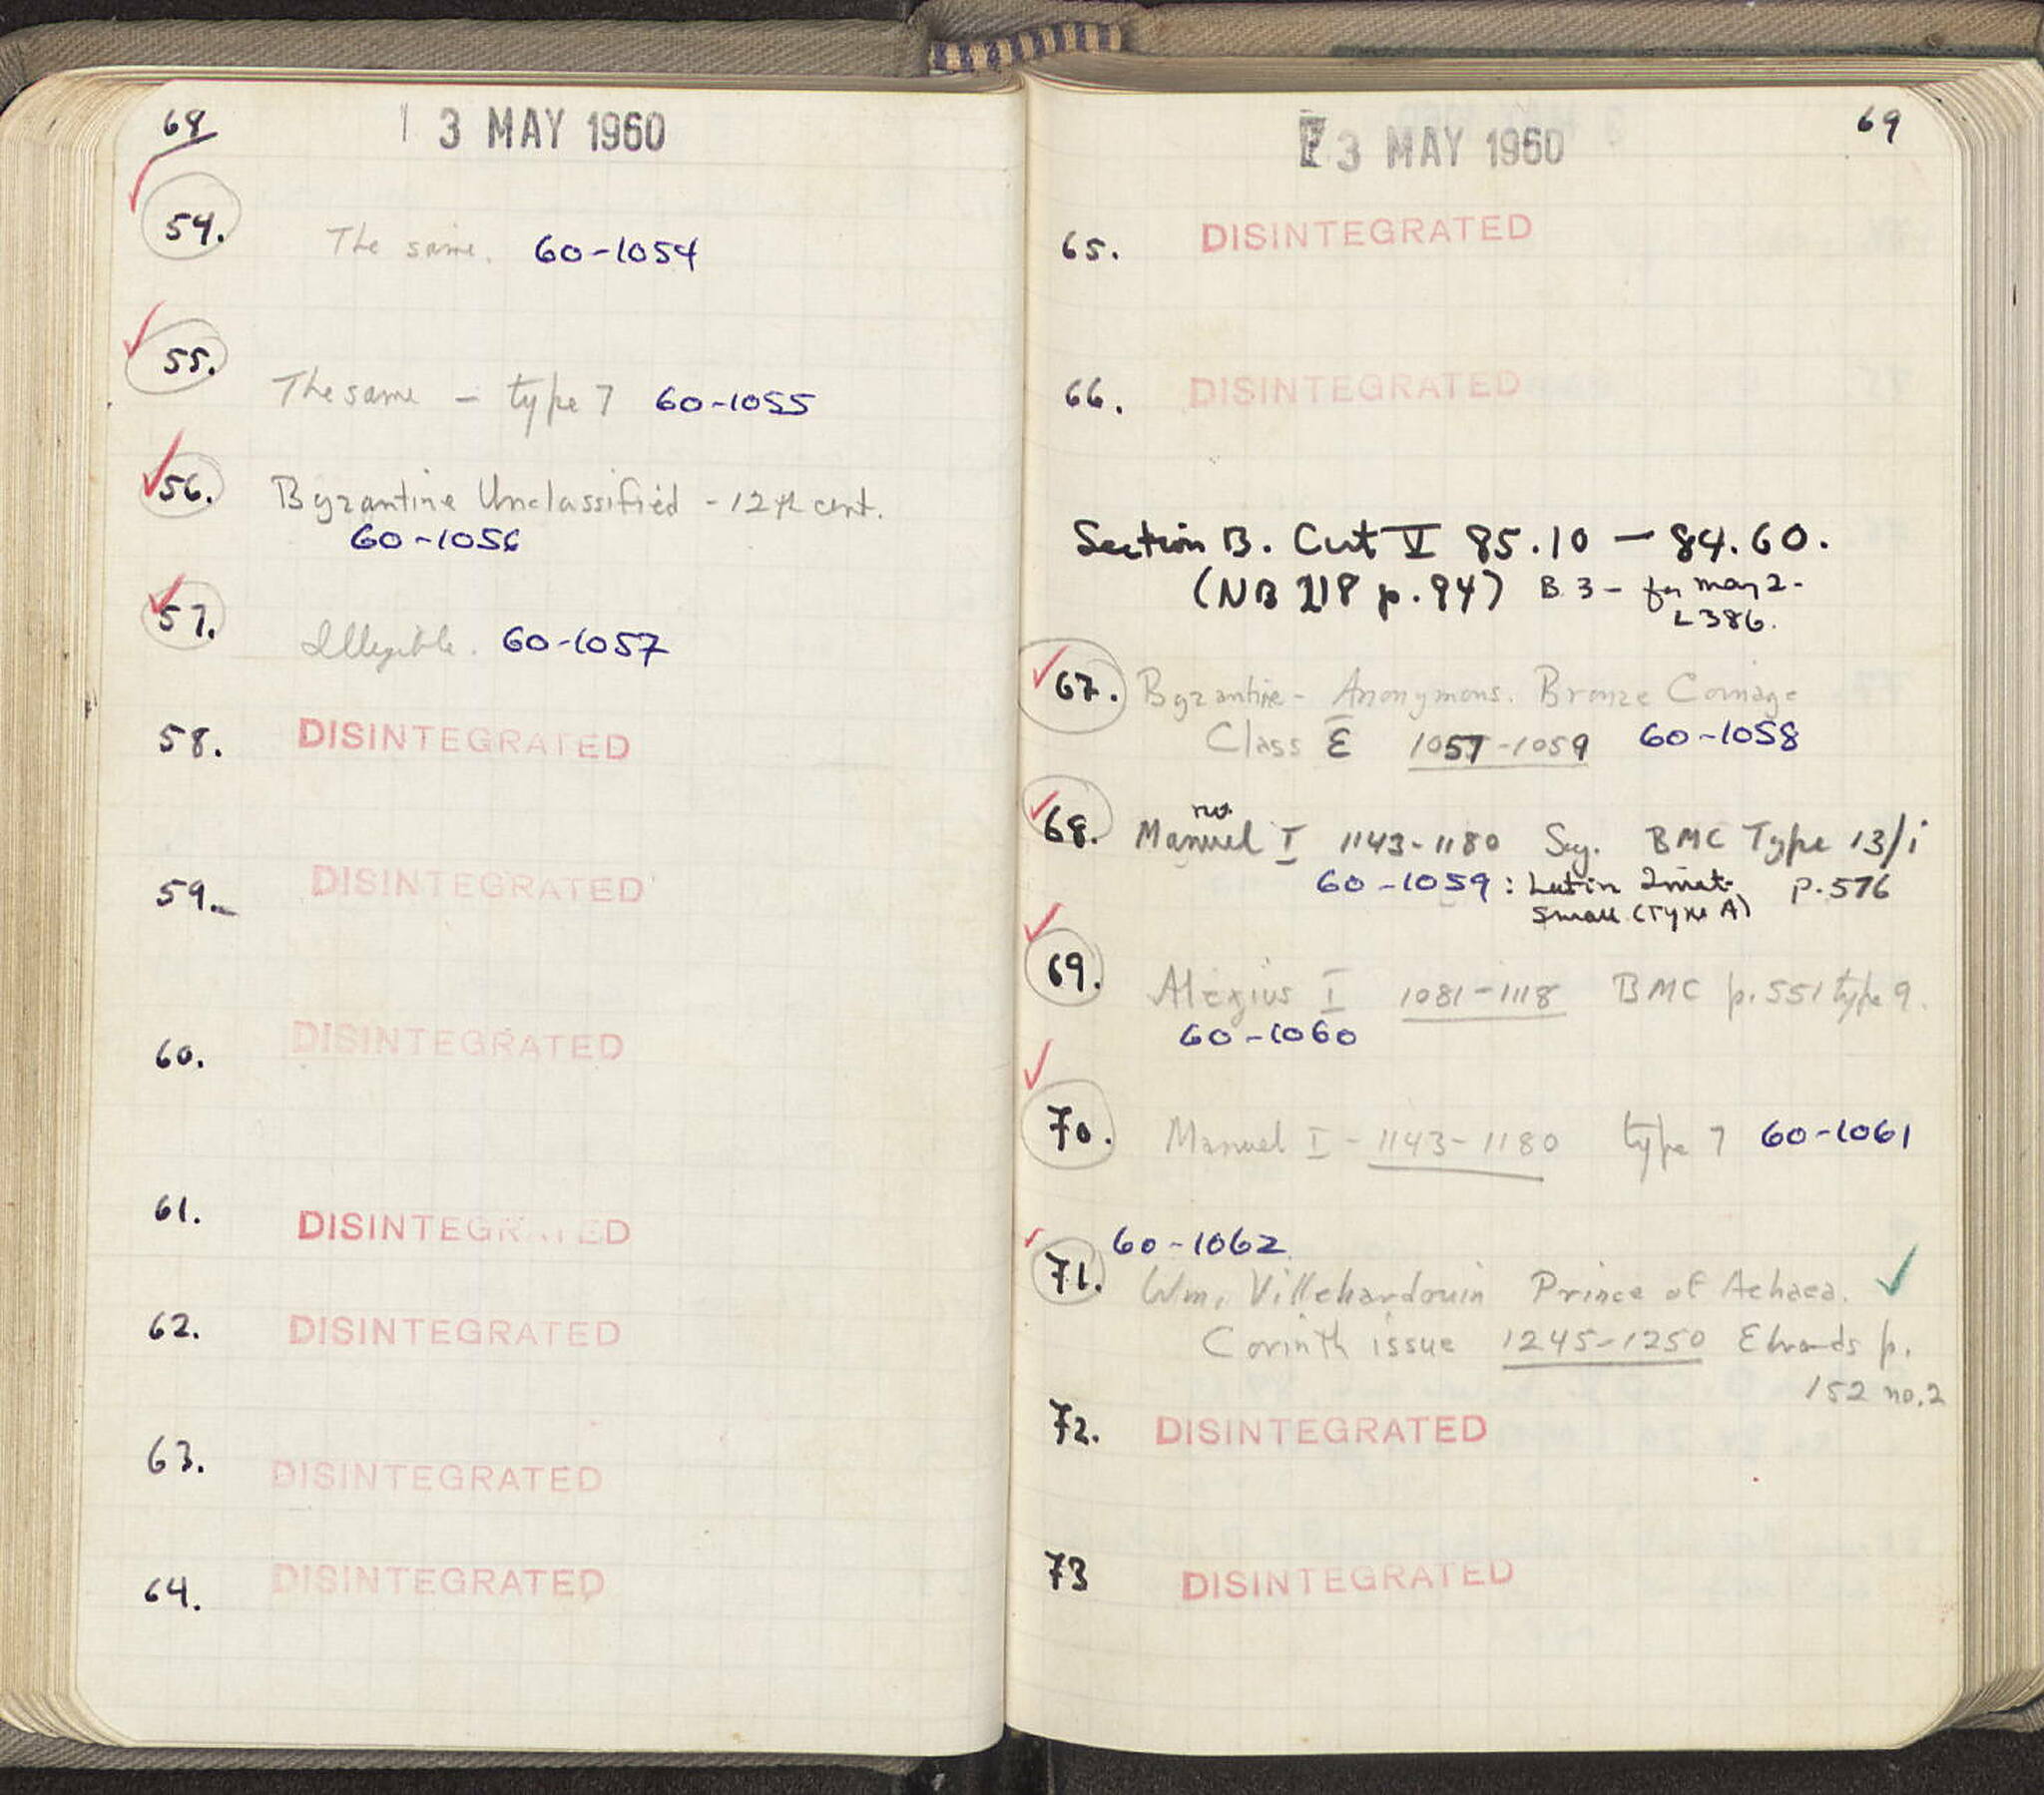 68
3 MAY 1960
54. The same. 60-1054
55. The same - type 7 60-1055
56. Byzantine Unclassified - 12th cent.
60-1056
57. Illegible. 60-1057
58. DISINTEGRATED
59. DISINTEGRATED
60. DISINTEGRATED
61. DISINTEGRATED
62. DISINTEGRATED
63. DISINTEGRATED
64. DISINTEGRATED
3 MAY 1960
69
65. DISINTEGRATED
66. DISINTEGRATED
Section B. Cut V 85.10 - 84.60.
(NB 218 p. 94) B 3 - for may 2 -
L386.
67. Byzantine - Anonymous. Bronze Coinage
Class E 1057-1059 60-1058
no
68. Manuel I 1143-1180 Scy. BMC Type 13/i
60-1059: Latin Imit. p. 576
Small (Type A)
69. Alexius I 1081-1118 BMC p. 551 type 9.
60-1060
70. Manuel I - 1143-1180 type 7 60-1061
60-1062
71. Wm. Villehardouin Prince of Achaea.
Corinth issue 1245-1250 Edwards p.
152 no. 2
72. DISINTEGRATED
73 DISINTEGRATED